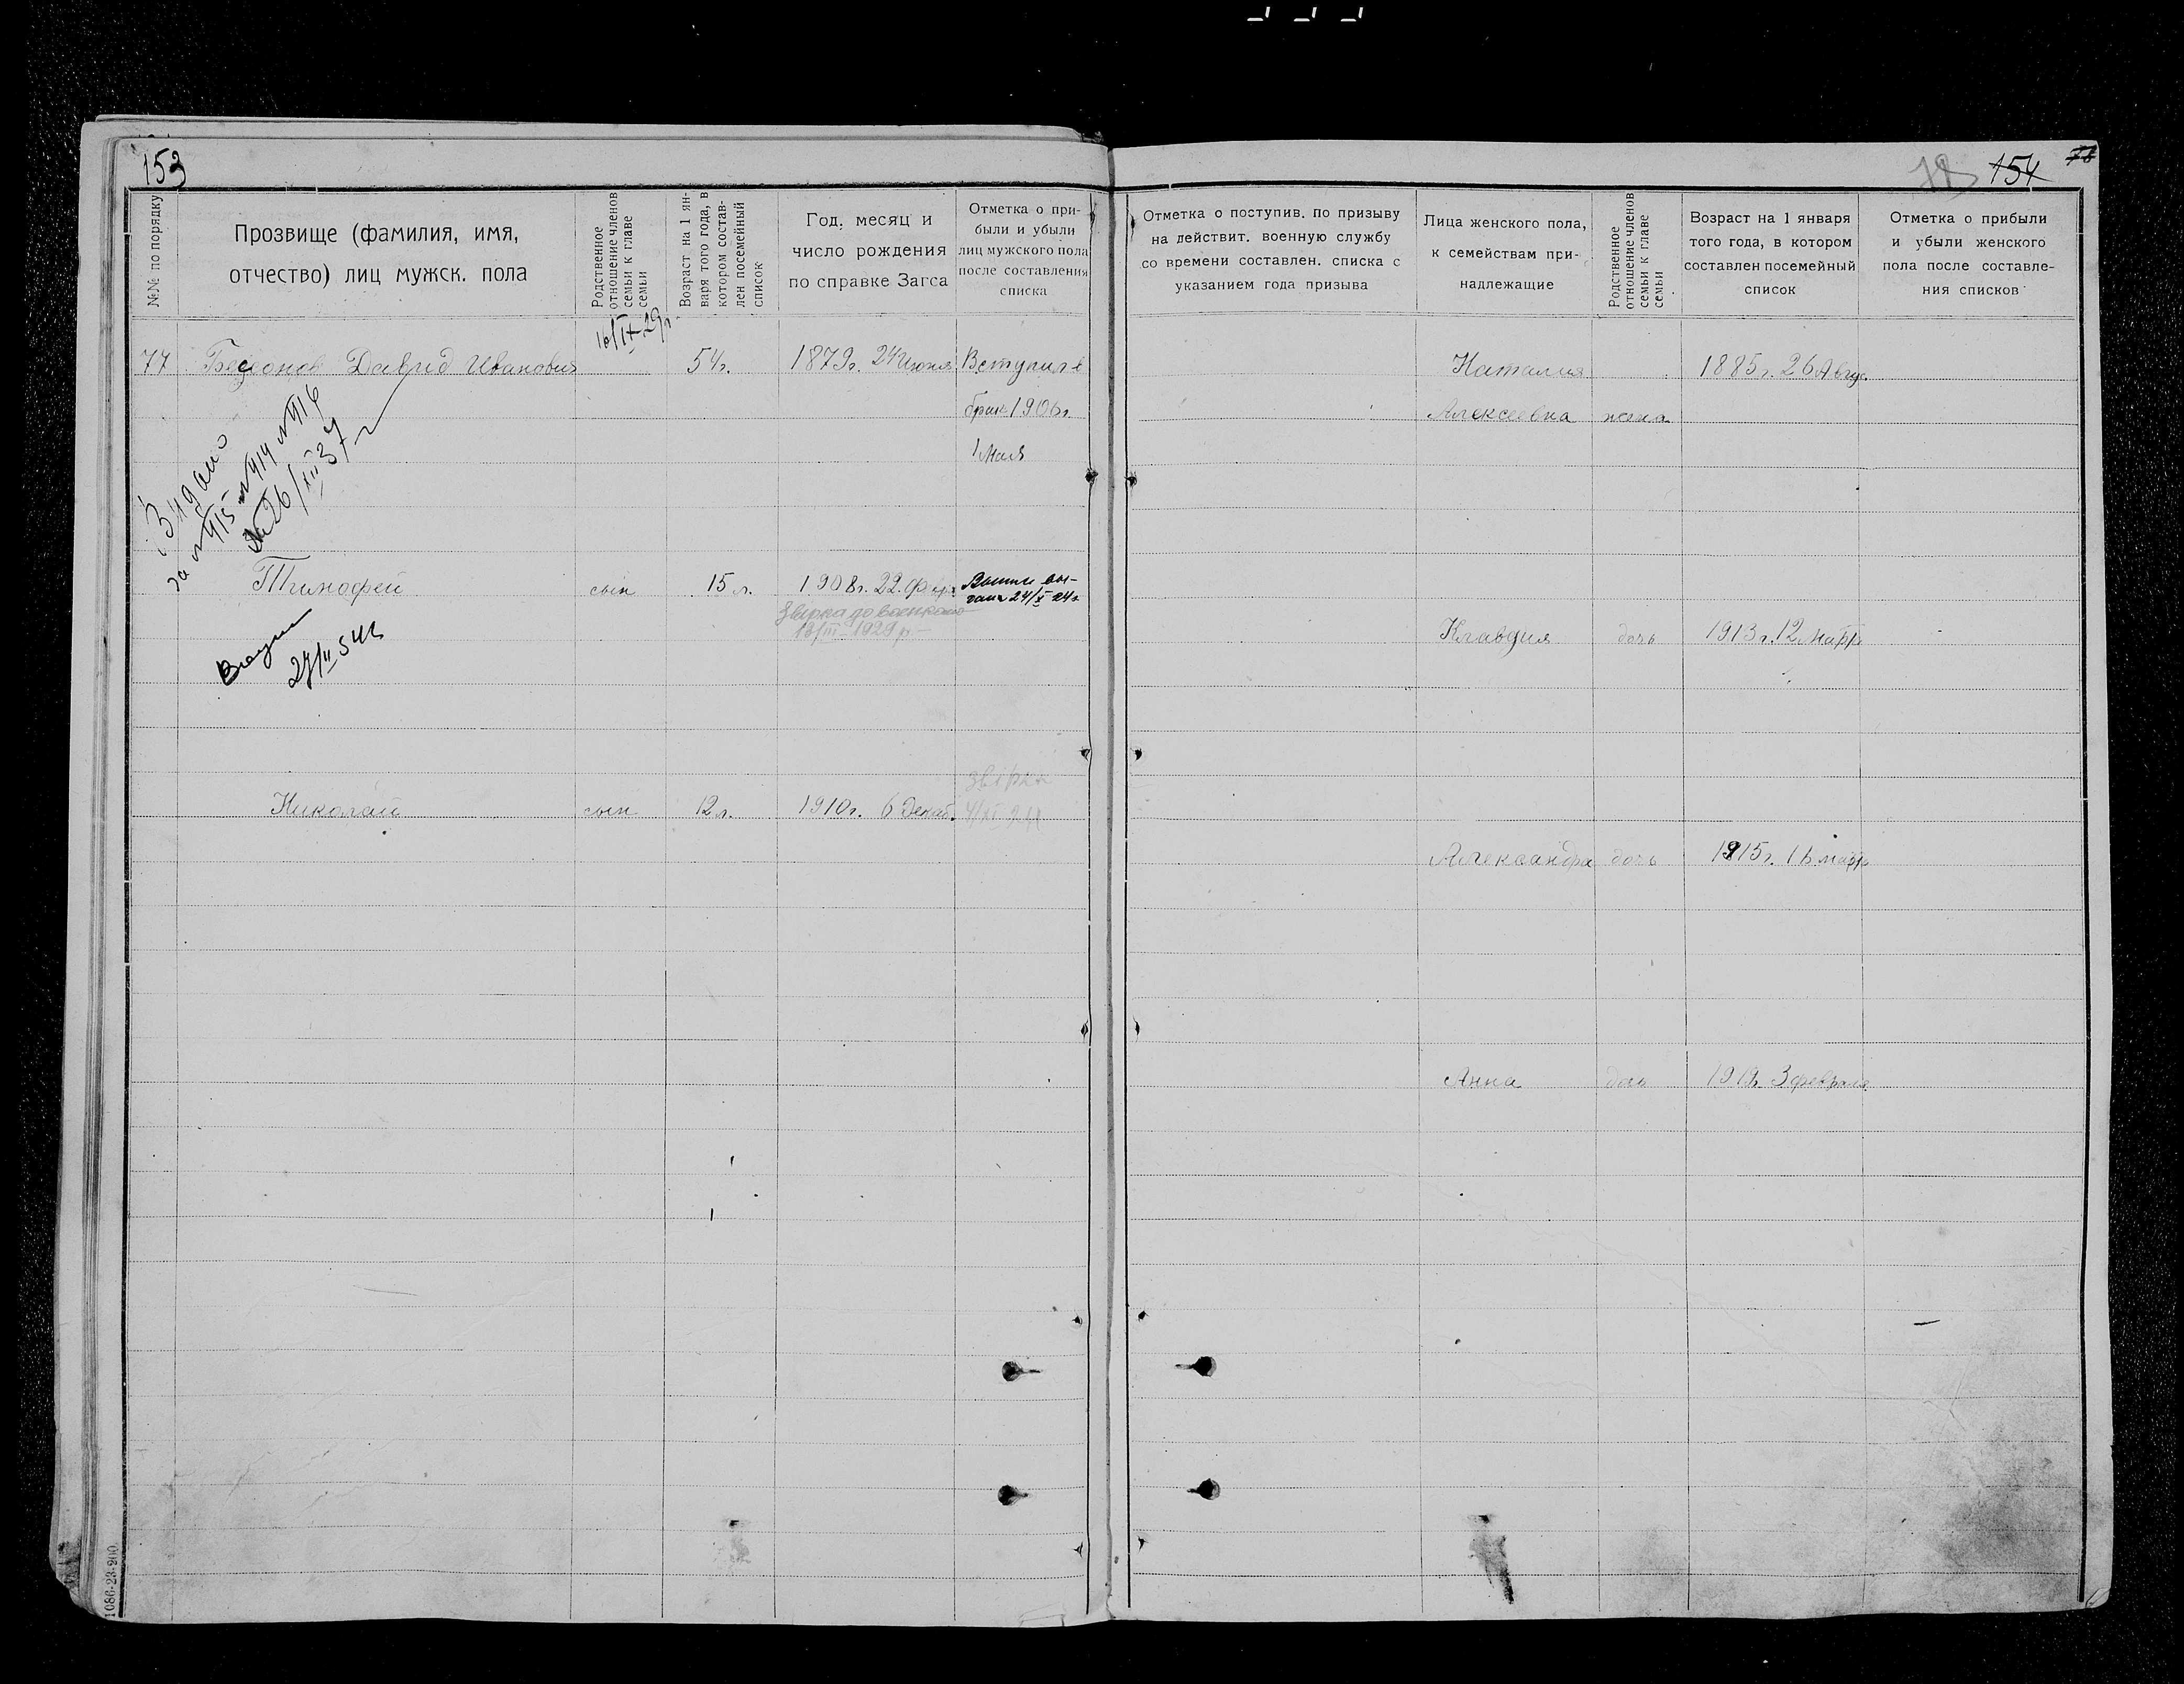 153
№№ по порядку
Прозвище (фамилия, имя,
отчество) лиц мужск. пола
Родственное
отношение членов
семьи к главе
семьи
Возраст на 1 ян-
варя того года, в
котором состав-
лен посемейный
список
Год, месяц и
число рождения
по справке Загса
Отметка о при-
были и убыли
лиц мужского пола
после составления
списка
16/IX-29р.
77 Бессонов Давид Иванович 54г. 1879г. 24 Июня Вступил в
брак 1906г.
1 Мая
Видано
за №415 №414 №416
26/XII 37
Тимофей сын 15 л. 1908г. 22. февр.
24/X 24г.
13/III-1929 р.
27/II 54г.
звірка
Николай сын 12 л. 1910г. 6 Декаб.
1086-23-200
154
Отметка о поступив. по призыву
на действит. военную службу
со времени составлен. списка с
указанием года призыва
Лица женского пола,
к семействам при-
надлежащие
Родственное
отношение членов
семьи к главе
семьи
Возраст на 1 января
того года, в котором
составлен посемейный
список
Отметка о прибыли
и убыли женского
пола после составле-
ния списков
Наталия 1885г. 26 Авгус.
Алексеевна жена
Клавдия дочь 1913г. 12 марта
Александра дочь 1915г. 16 марта
Анна дочь 1919г. 3 февраля